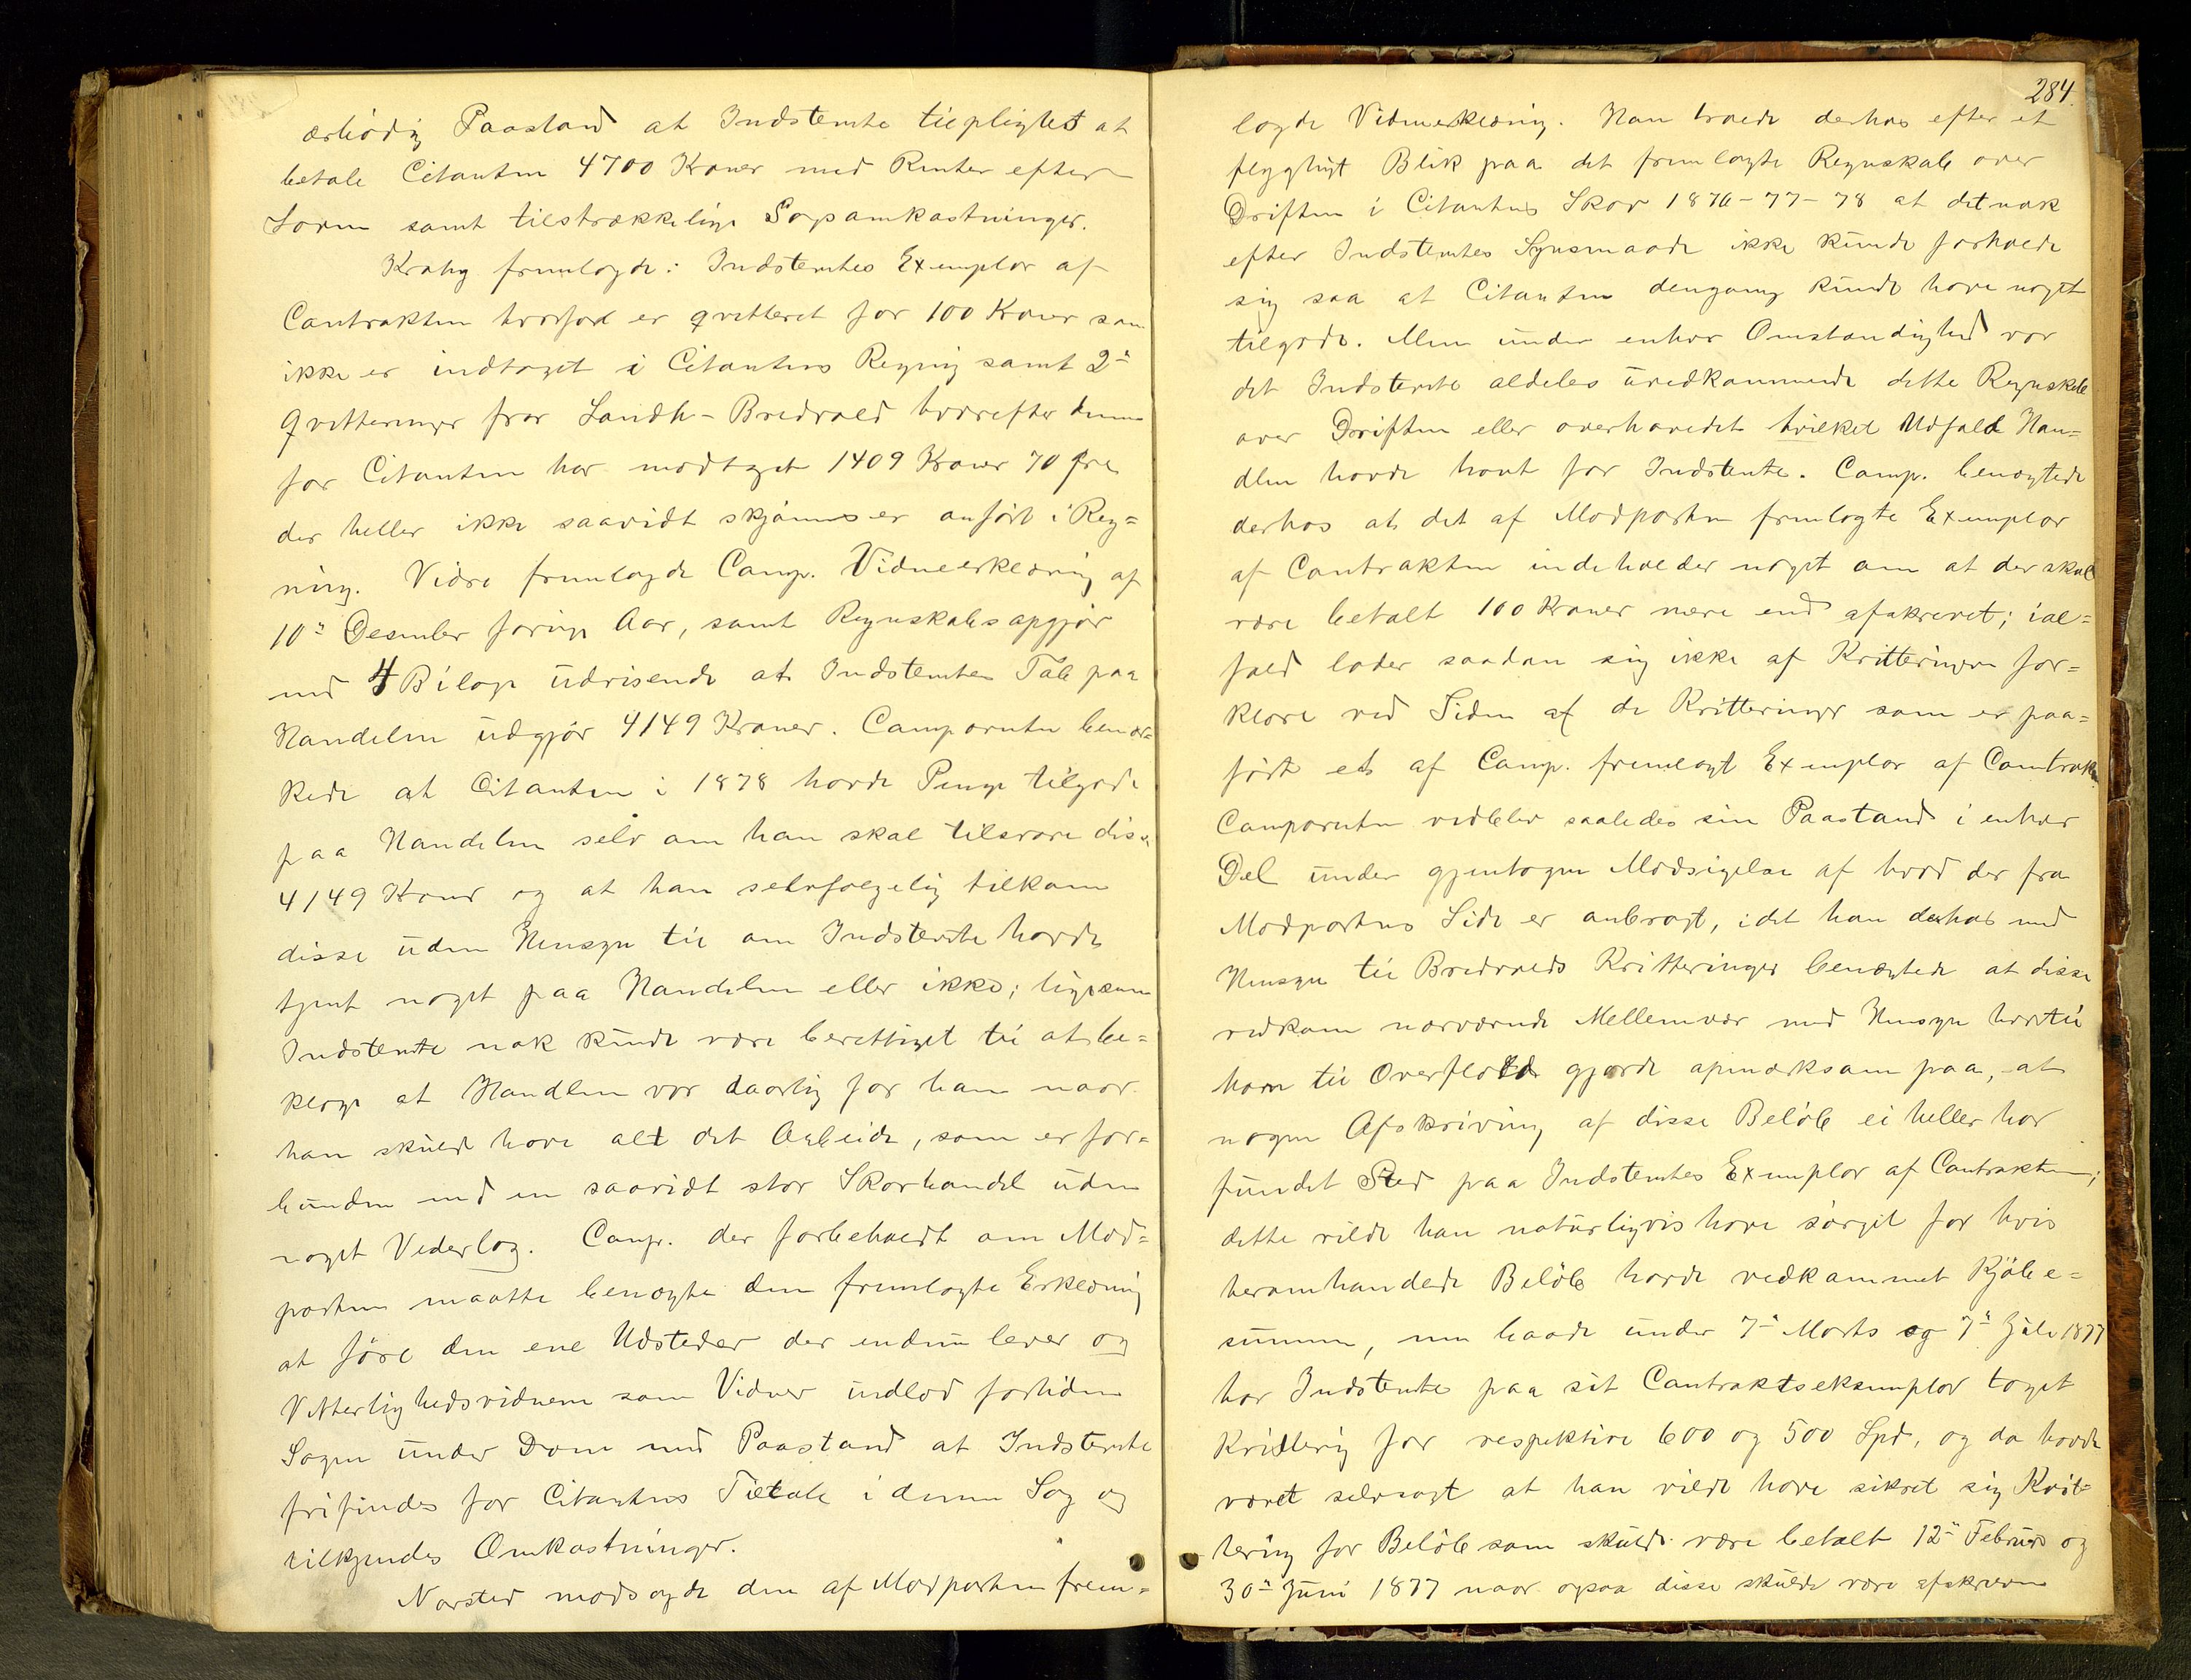 ærbödig Paastand at Indstevnte tilpligtes at
betale Citanten 4700 Kroner med Renter efter
Loven samt tilstrækkelige Sagsomkostninger.
Krabg fremlagde: Indstevntes Exemplar af
Contrakten hvorpaa er qvitteret for 100 Kroner som
ikke er indtaget i Citantens Regning samt 2de
Qvitteringer fra Landh. Bredvold hvorefter denne
for Citanten har modtaget 1409 Kroner 70 Øre
der heller ikke saavidt skjönnes er anfört i Reg=
ning. Videre fremlagde Comp. Vidneerklæring af
10de Desember forrige Aar, samt Regnskabsopgjör
med 4 Bilage udvisende at Indstevntes Tab paa
Handelen udgjör 4149 Kroner. Comparenten bemær=
kede at Citanten i 1878 havde Penge tilgode
paa Handelen selv om han skal tilsvare disse
4149 Kroner og at han selvfølgelig tilkom
disse uden Hensyn til om Indstevnte havde
tjent noget paa Handelen eller ikke; ligesom
Indstevnte nok kunde være berettiget til at be=
klage at Handlen var daarlig for ham naar
han skulde have alt det Arbeide, som er for=
bunden med en saavidt stor Skovhandel uden
noget Vederlag. Comp. der forbeholdt om Mod=
parten maatte benægte den fremlagte Erklæring
at före den ene Udsteder der endnu lever og
Vitterlighedsvidnerne som Vidner indlod fortiden
Sagen under Dom med Paastand at Indstevnte
frifindes for Citantens Tiltale i denne Sag og
tilkjendes Omkostninger.
Narsted modsagde den af Modparten frem=
284.
lagde Vidneerklæring. Han troede derhos efter et
flygtigt Blik paa det fremlagte Regnskab over
Driften i Citantens Skov 1876-77-78 at det nok
efter Indstevntes Synsmaade ikke kunde forholde
sig saa at Citanten dengang kunde have noget
tilgode. Men under enhver Omstændighed var
det Indstevnte aldeles uvedkommende dette Regnskab
over Driften eller overhovedet hvilket Udfald Han=
dlen havde havt for Indstevnte. Comp. benægtede
derhos at det af Modparten fremlagte Exemplar
af Contrakten indeholder noget om at der skal
være betalt 100 Kroner mere end afskrevet; ial=
fald lader saadan sig ikke af Kvitteringen for=
klare ved Siden af de Kvitteringer som er paa=
fört et af Comp. fremlagt Exemplar af Contrakten
Comparenten vedblev saaledes sin Paastand i enhver
Del under gjentagen Modsigelse af hvad der fra
Modpartens Side er anbragt, idet han derhos med
Hensyn til Bredvolds Kvitteringer benægtede at disse
vedkom nærværende Mellemvær med Hensyn hvortil
han til Overflod gjorde opmærksom paa, at
nogen Afskrivning af disse Belöb ei heller har
fundet Sted paa Indstevntes Exemplar af Contrakten;
dette vilde han naturligvis have sörget for hvis
heromhandlede Belöb havde vedkommet Kjöbe=
summen, nu baade under 7de Marts og 7de Juli 1877
har Indstevnte paa sit Contraktseksemplar taget
Kvittering for respektive 600 og 500 Spd, og da havde
været selvsagt at han vilde have sikret sig Kvit=
tering for Belöb som skulde være betalt 12te Februar og
30te Juni 1877 naar ogsaa disse skulde være afskrevne